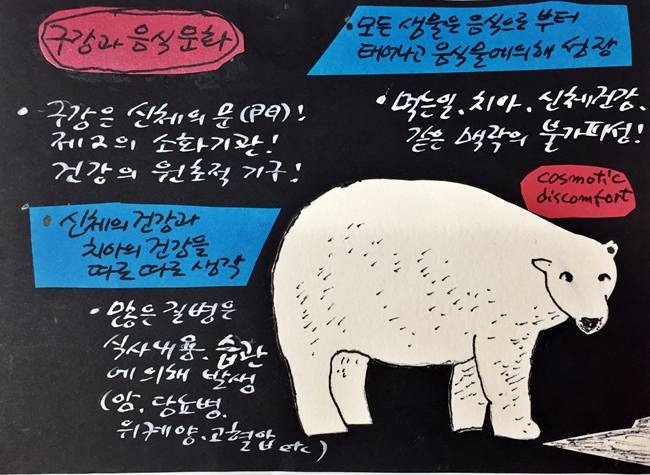 구강과 음식문화
• 모든 생물은 음식으로부터
태어나고 음식물에 의해 성장
• 구강은 신체의 문(門)!
제2의 소화기관!
건강의 원초적 기구!
• 먹는일, 치아, 신체건강,
같은 맥락의 불가피성!
cosmotic
discomfort
• 신체의 건강과
치아의 건강을
따로 따로 생각
• 많은 질병은
식사내용, 습관
에 의해 발생
(암, 당뇨병,
위궤양, 고혈압 etc)